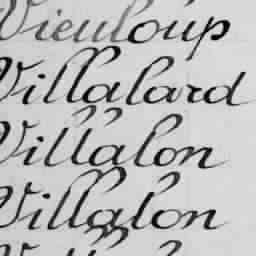 Vieuloup
Villalard
Villalon
Villalon